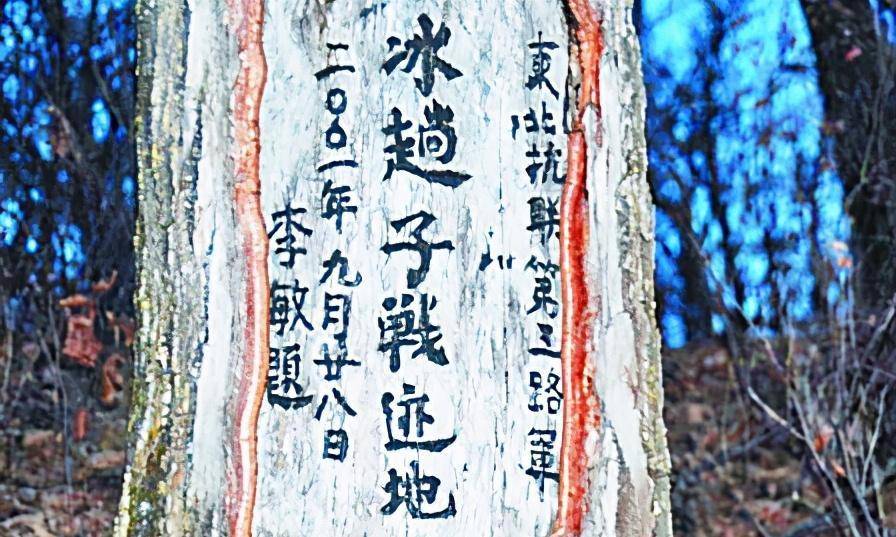 東北抗联第三路軍
冰趟子戰迹地
二〇〇一年九月廿八日
李敏題